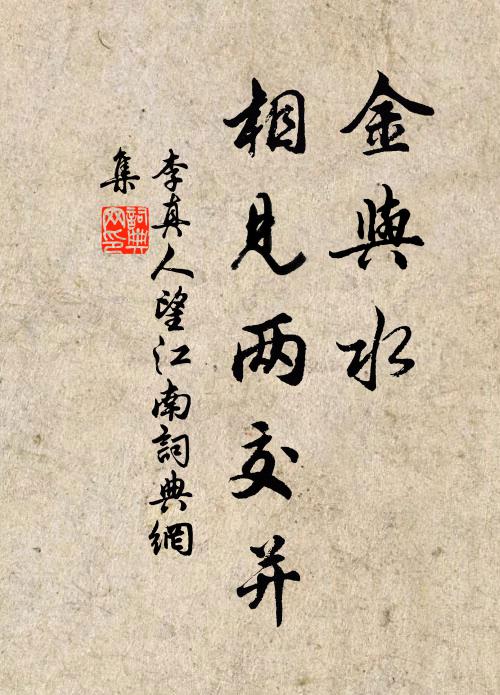 金與水
相見兩交并
李真人望江南詞典網
集
詞典
网印